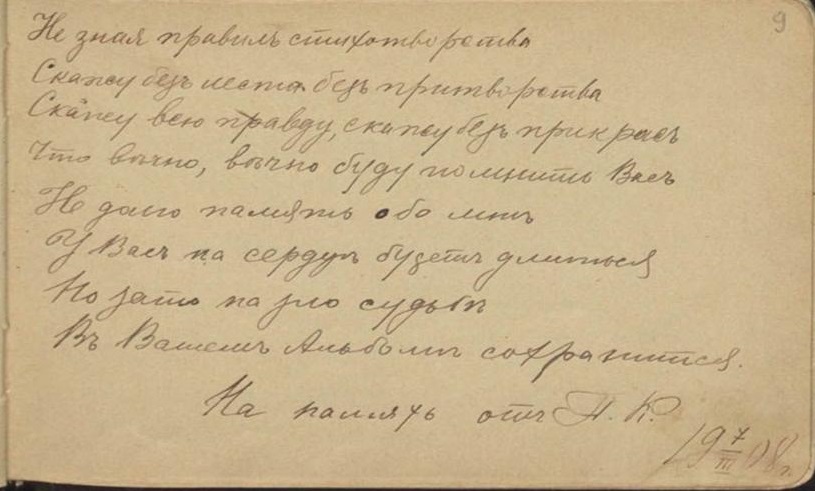 9
Не зная правилъ стихотворства
Скажу безъ лести безъ притворства
Скажу всю правду, скажу безъ прикрасъ
Что вѣчно, вѣчно буду помнить Васъ
Не долго память обо мнѣ
У Васъ на сердцѣ будетъ длиться
Но зато на зло судьбѣ
Въ Вашемъ Альбомѣ сохранится.
На память отъ К.
19 7/III 08 г.